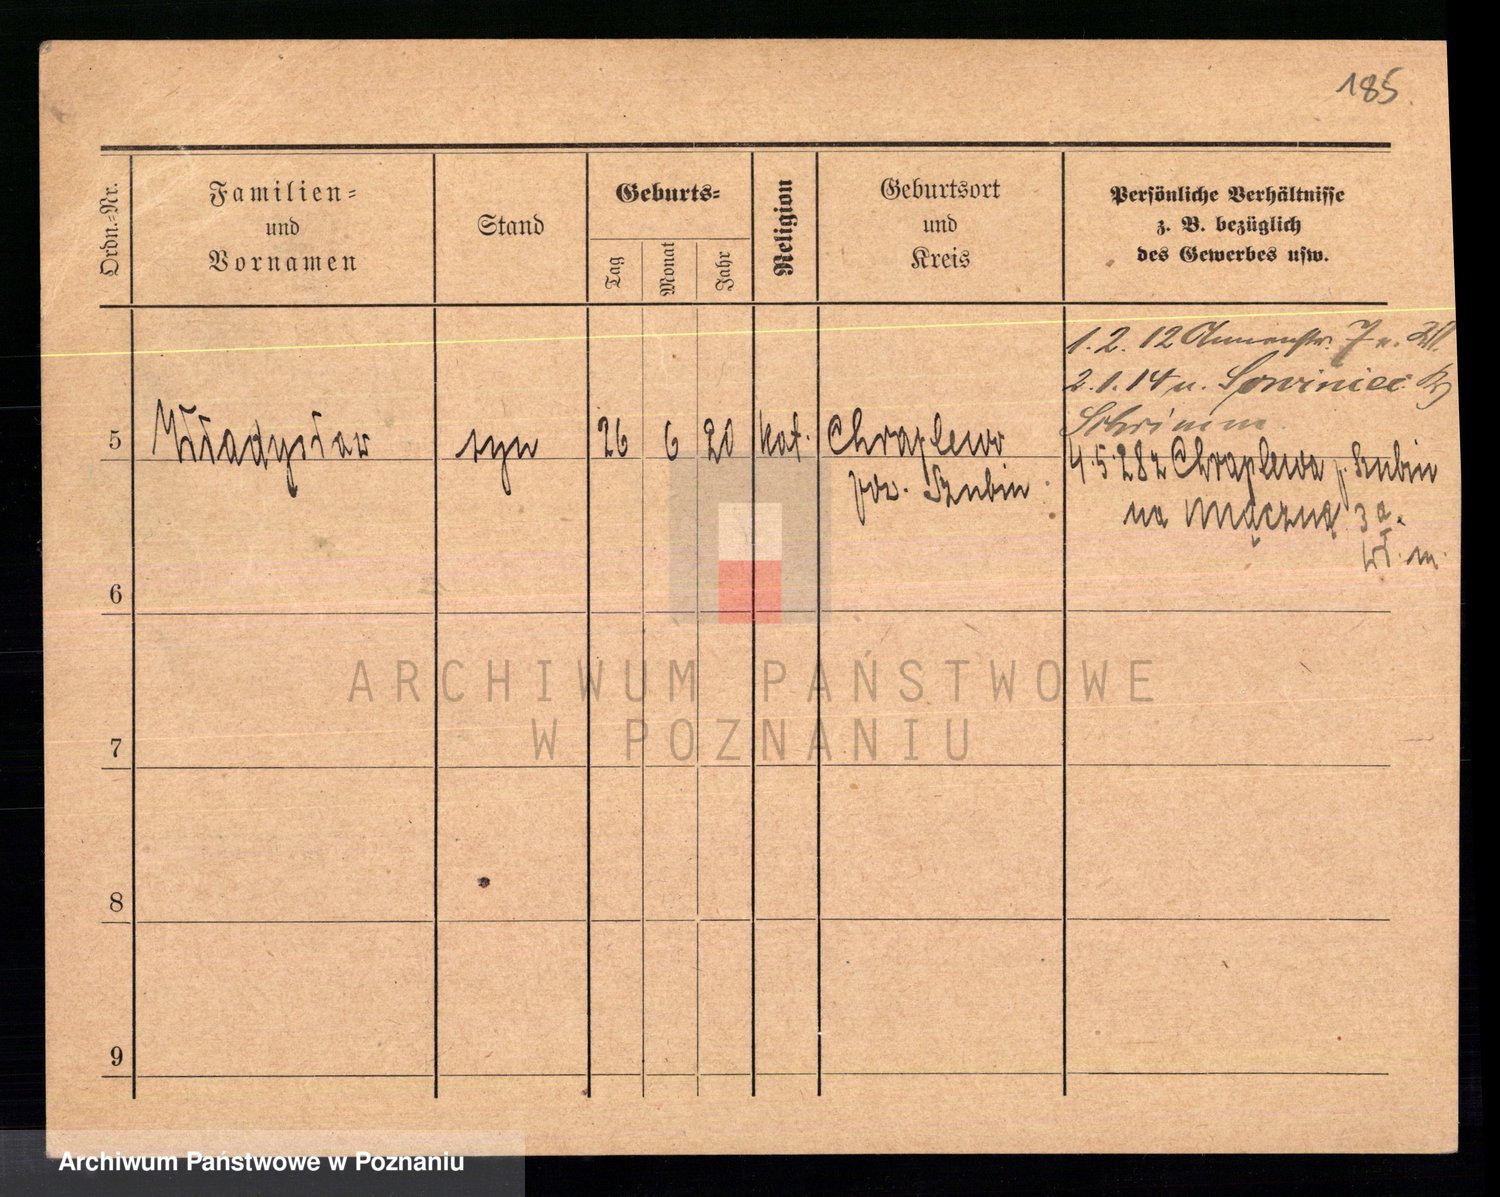 185
Ordn.=Nr.
Familien=
und
Vornamen
Stand
Geburts=
Tag
Monat
Jahr
Religion
Geburtsort
und
Kreis
Persönliche Verhältnisse
z. B. bezüglich
des Gewerbes usw.
1. 2. 12 7
2. 1. 14 n. Sowiniec
Schrimm
5 Władysław syn 26 6 20 kat. Chraplewo
pow. Szubin
4.5.28 z Chraplewa p. Szubin
na Mączną 3a.
6
7
8
9
ARCHIWUM PAŃSTWOWE
W POZNANIU
Archiwum Państwowe w Poznaniu